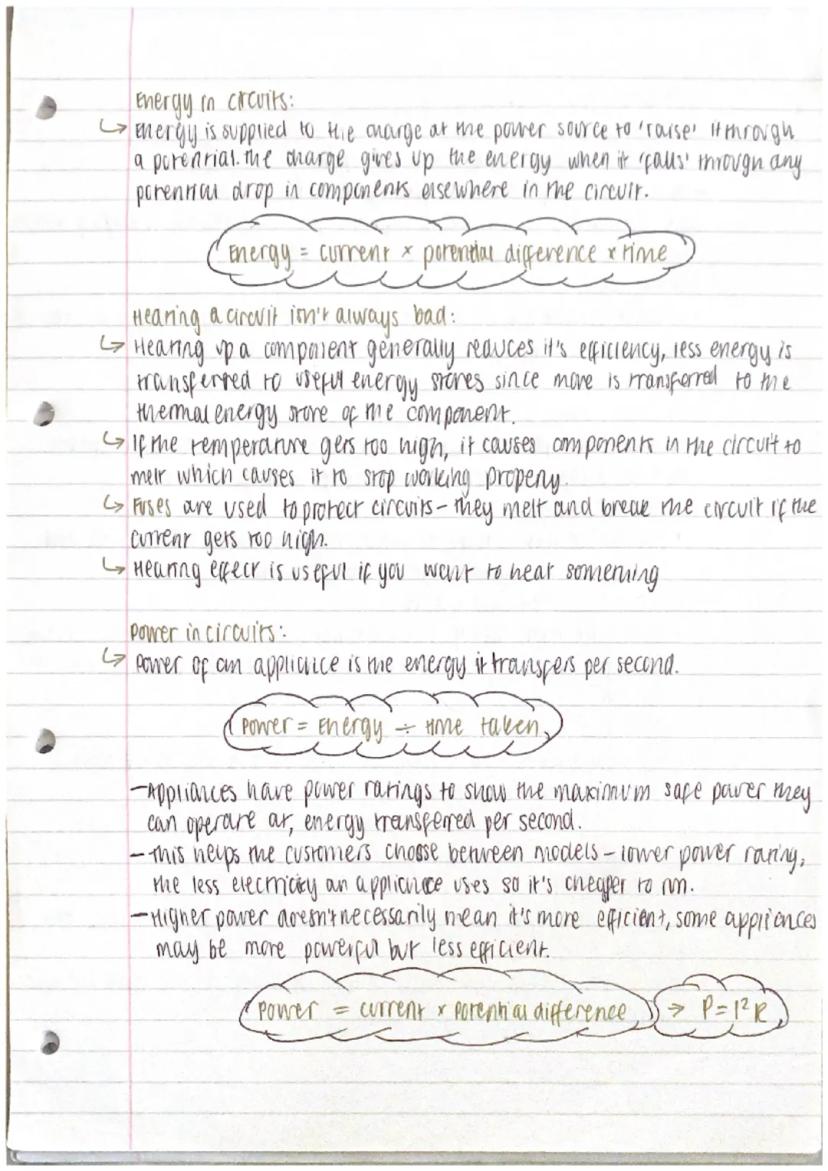 Energy in circuits:
↳ Energy is supplied to the charge at the power source to 'raise' it through
a potential. the charge gives up the energy when it 'falls' through any
potential drop in components elsewhere in the circuit.
Energy = current × potential difference × time
Heating a circuit isn't always bad:
↳ Heating up a component generally reduces it's efficiency, less energy is
transferred to useful energy stores since more is transferred to the
thermal energy store of the component.
↳ If the temperature gets too high, it causes components in the circuit to
melt which causes it to stop working properly.
↳ Fuses are used to protect circuits - they melt and break the circuit if the
current gets too high.
↳ Heating effect is useful if you want to heat something
Power in circuits:
↳ Power of an appliance is the energy it transfers per second.
Power = Energy ÷ time taken
- Appliances have power ratings to show the maximum safe power they
can operate at, energy transferred per second.
- This helps the customers choose between models - lower power rating,
the less electricity an appliance uses so it's cheaper to run.
- Higher power doesn't necessarily mean it's more efficient, some appliances
may be more powerful but less efficient.
Power = current × potential difference ⇒ P = I²R